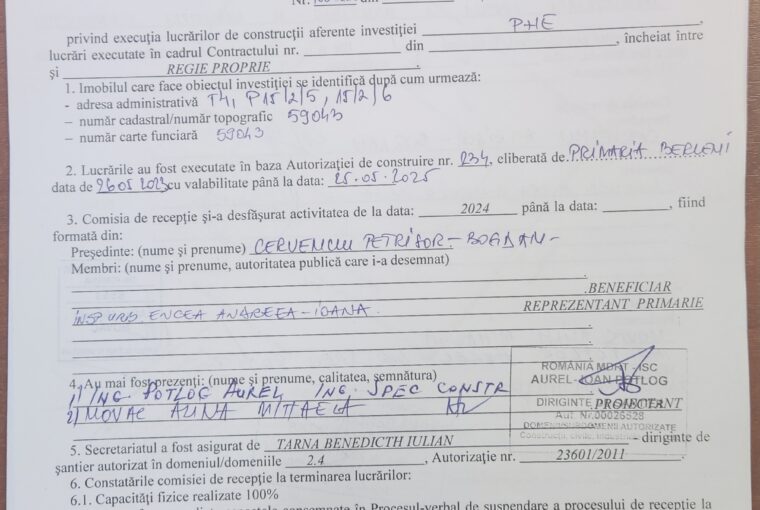 Nr.
privind execuția lucrărilor de construcții aferente investiției P+1E,
lucrări executate în cadrul Contractului nr. ________ din ________, încheiat între
și REGIE PROPRIE.
1. Imobilul care face obiectul investiției se identifică după cum urmează:
- adresa administrativă T4, P15/2/5, 15/2/6
– număr cadastral/număr topografic 59043
– număr carte funciară 59043
2. Lucrările au fost executate în baza Autorizației de construire nr. 234, eliberată de PRIMARIA BERCENI
data de 26.05 2023 cu valabilitate până la data: 25.05.2025
3. Comisia de recepție și-a desfășurat activitatea de la data: 2024 până la data: ________, fiind
formată din:
Președinte: (nume și prenume) CERVENCIU PETRISOR - BOGDAN -
Membri: (nume și prenume, autoritatea publică care i-a desemnat)
BENEFICIAR
INSP URB ENCEA ANDREEA - IOANA. REPREZENTANT PRIMARIE
4. Au mai fost prezenți: (nume și prenume, calitatea, semnătura)
ROMANIA MDRT - ISC
1) ING. POTLOG AUREL ING. SPEC CONSTR
AUREL-IOAN POTLOG
2) NOVAC ALINA MIHAELA
DIRIGINTE PROIECTANT
Aut. Nr.00026528
DOMENII/SUBDOMENII AUTORIZATE
Construcții, civile, industriale
5. Secretariatul a fost asigurat de TARNA BENEDICTH IULIAN - diriginte de
șantier autorizat în domeniul/domeniile 2.4, Autorizație nr. 23601/2011.
6. Constatările comisiei de recepție la terminarea lucrărilor:
6.1. Capacități fizice realizate 100%
consemnate în Procesul-verbal de suspendare a procesului de recepție la